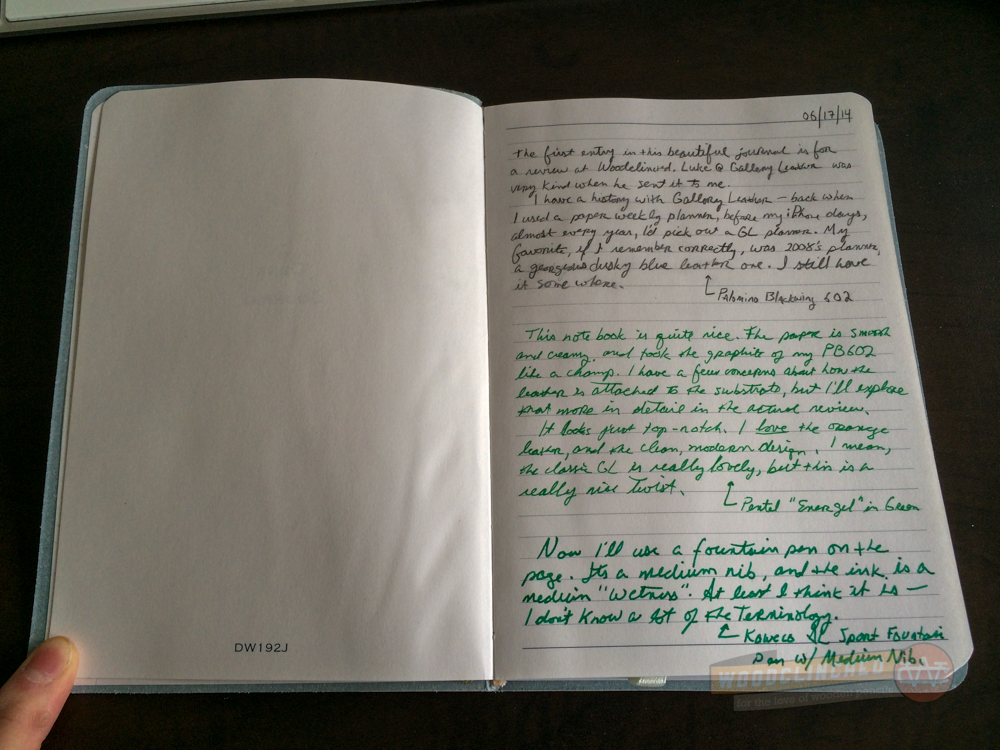 06/17/14
The first entry in this beautiful journal is for
a review at Woodclinched. Luke @ Gallery Leather was
very kind when he sent it to me.
I have a history with Gallery Leather – back when
I used a paper weekly planner, before my iPhone days,
almost every year, I'd pick out a GL planner. My
favorite, if I remember correctly, was 2008's planner,
a gorgeous dusky blue leather one. I still have
it some where.
Palomino Blackwing 602
This note book is quite nice. The paper is smooth
and creamy, and took the graphite of my PB602
like a champ. I have a few concerns about how the
leather is attached to the substrate, but I'll explore
that more in detail in the actual review.
It looks just top-notch. I love the orange
leather, and the clean, modern design. I mean,
the classic GL is really lovely, but this is a
really nice twist.
Pentel "Energel" in Green
Now I'll use a fountain pen on the
page. Its a medium nib, and the ink is a
medium "wetness". At least I think it is —
I don't know a lot of the terminology.
Kaweco Sport Fountain
Pen w/ Medium Nib.
DW192J
WOODCLINCHED
for the love of